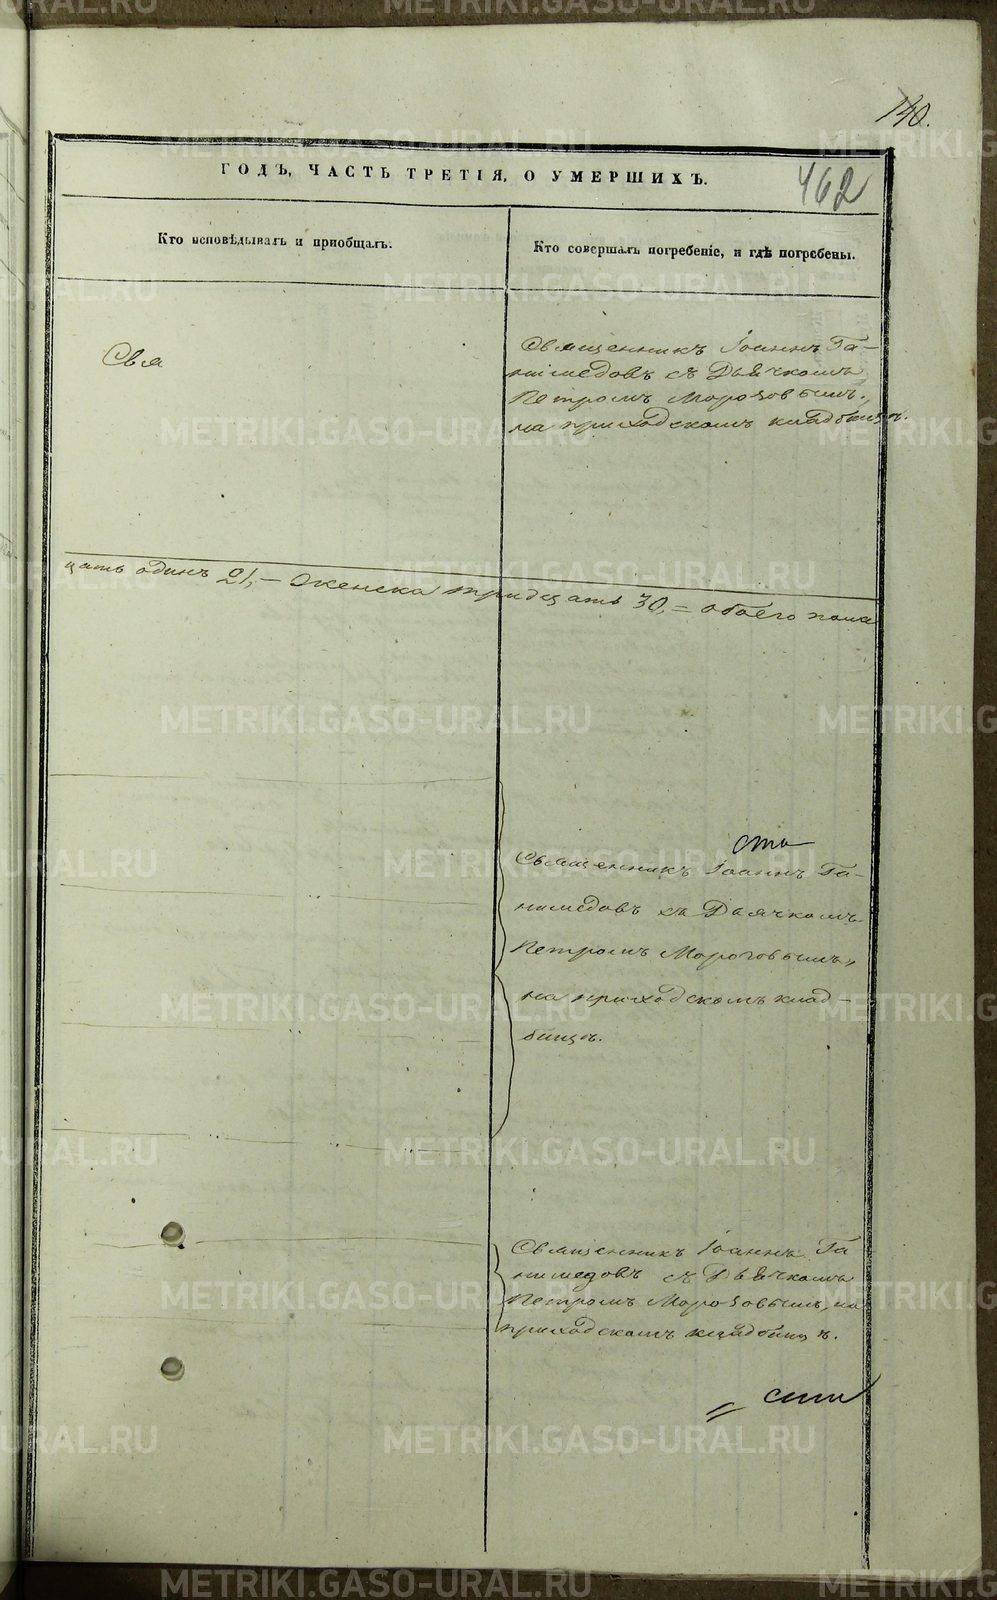 140.
ГОДЪ, ЧАСТЬ ТРЕТІЯ, О УМЕРШИХЪ.
462
Кто исповѣдывалъ и приобщалъ.
Кто совершалъ погребеніе, и гдѣ погребены.
Свя
Священникъ Іоаннъ Га-
нимедовъ съ Дьячкомъ
Петромъ Морозовымъ,
на приходскомъ кладбищѣ.
цать одинъ 21, - женска тридцать 30, = обоего пола
ста
Священникъ Іоаннъ Га-
нимедовъ съ Дьячкомъ
Петромъ Морозовымъ,
на приходскомъ клад-
бищѣ.
Священникъ Іоаннъ Га
нимедовъ съ Дьячкомъ
Петромъ Морозовымъ, на
приходскомъ кладбищѣ.
METRIKI.GASO-URAL.RU